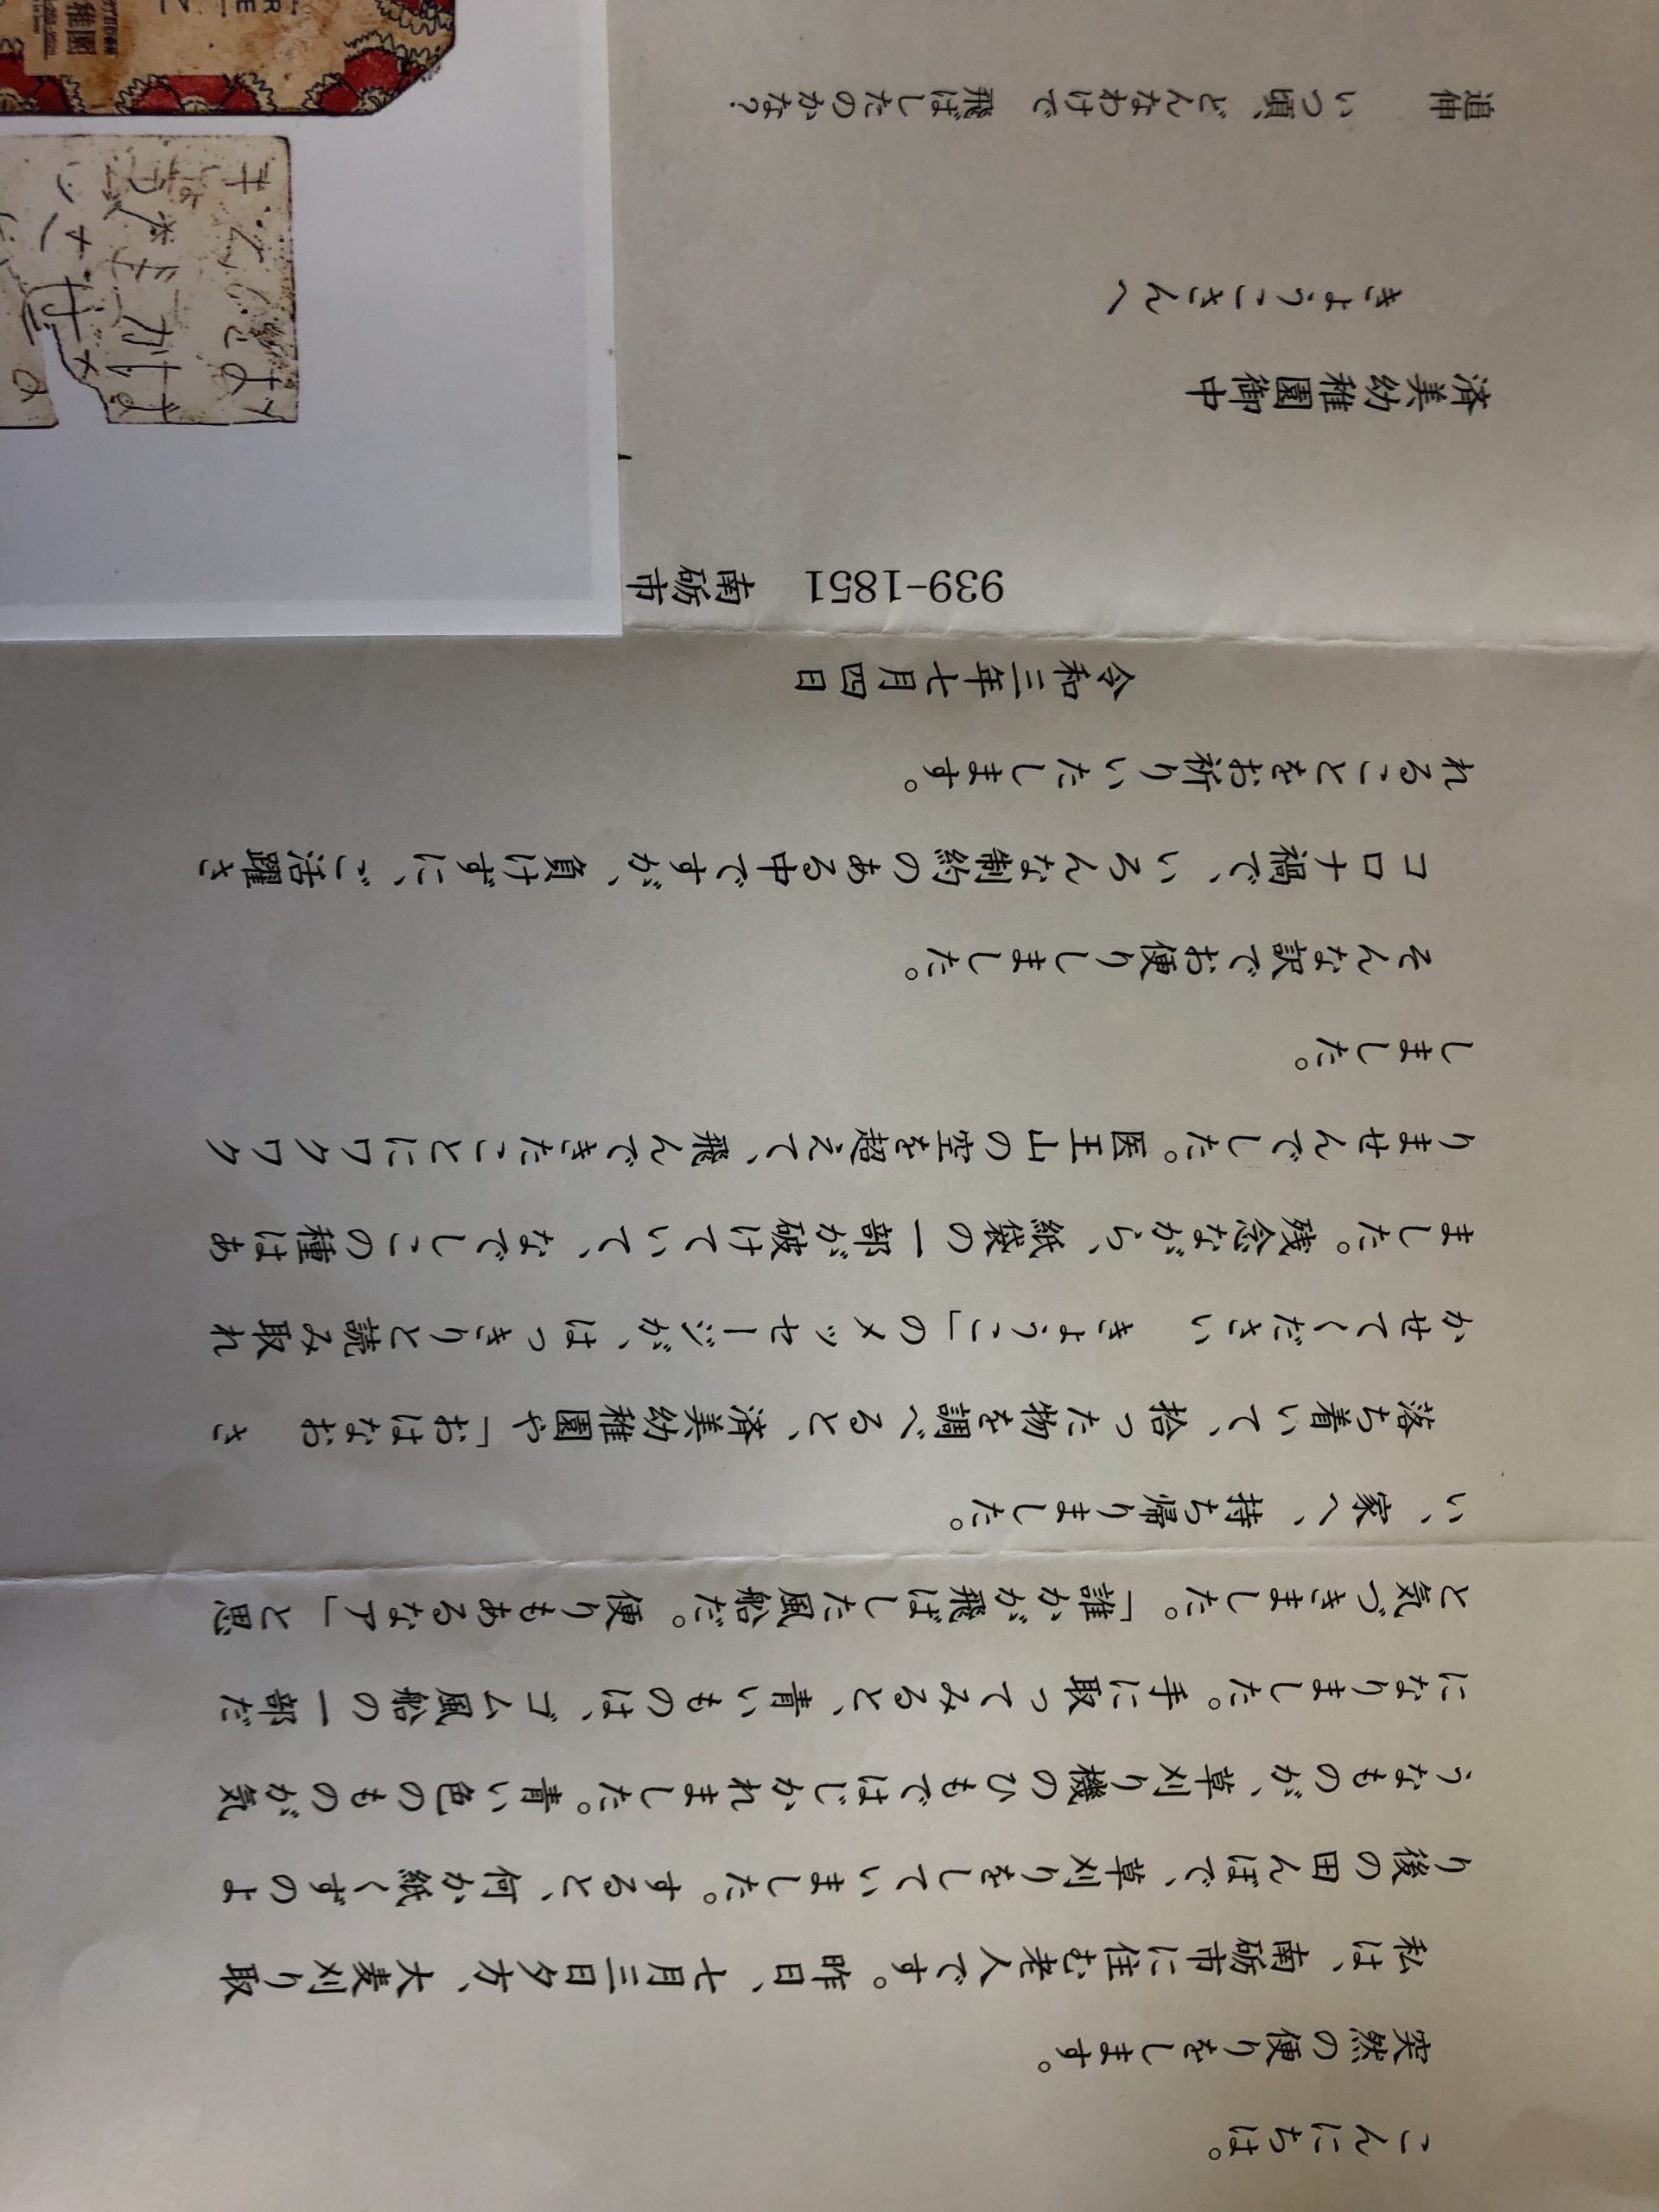 こんにちは。
突然の便りをします。
私は、南砺市に住む老人です。昨日、七月三日夕方、大麦刈り取
り後の田んぼで、草刈りをしていました。すると、何か紙くずのよ
うなものが、草刈り機のひもではじかれました。青い色のものが気
になりました。手に取ってみると、青いものは、ゴム風船の一部だ
と気づきました。「誰かが飛ばした風船だ。便りもあるなア」と思
い、家へ、持ち帰りました。
落ち着いて、拾った物を調べると、済美幼稚園や「おはなお　さ
かせてください　きょうこ」のメッセージが、はっきりと読み取れ
ました。残念ながら、紙袋の一部が破けていて、なでしこの種はあ
りませんでした。医王山の空を超えて、飛んできたことにワクワク
しました。
そんな訳でお便りしました。
コロナ禍で、いろんな制約のある中ですが、負けずに、ご活躍さ
れることをお祈りいたします。
令和三年七月四日
939-1851　南砺市
済美幼稚園御中
きょうこさんへ
追伸　いつ頃、どんなわけで　飛ばしたのかな？
稚園